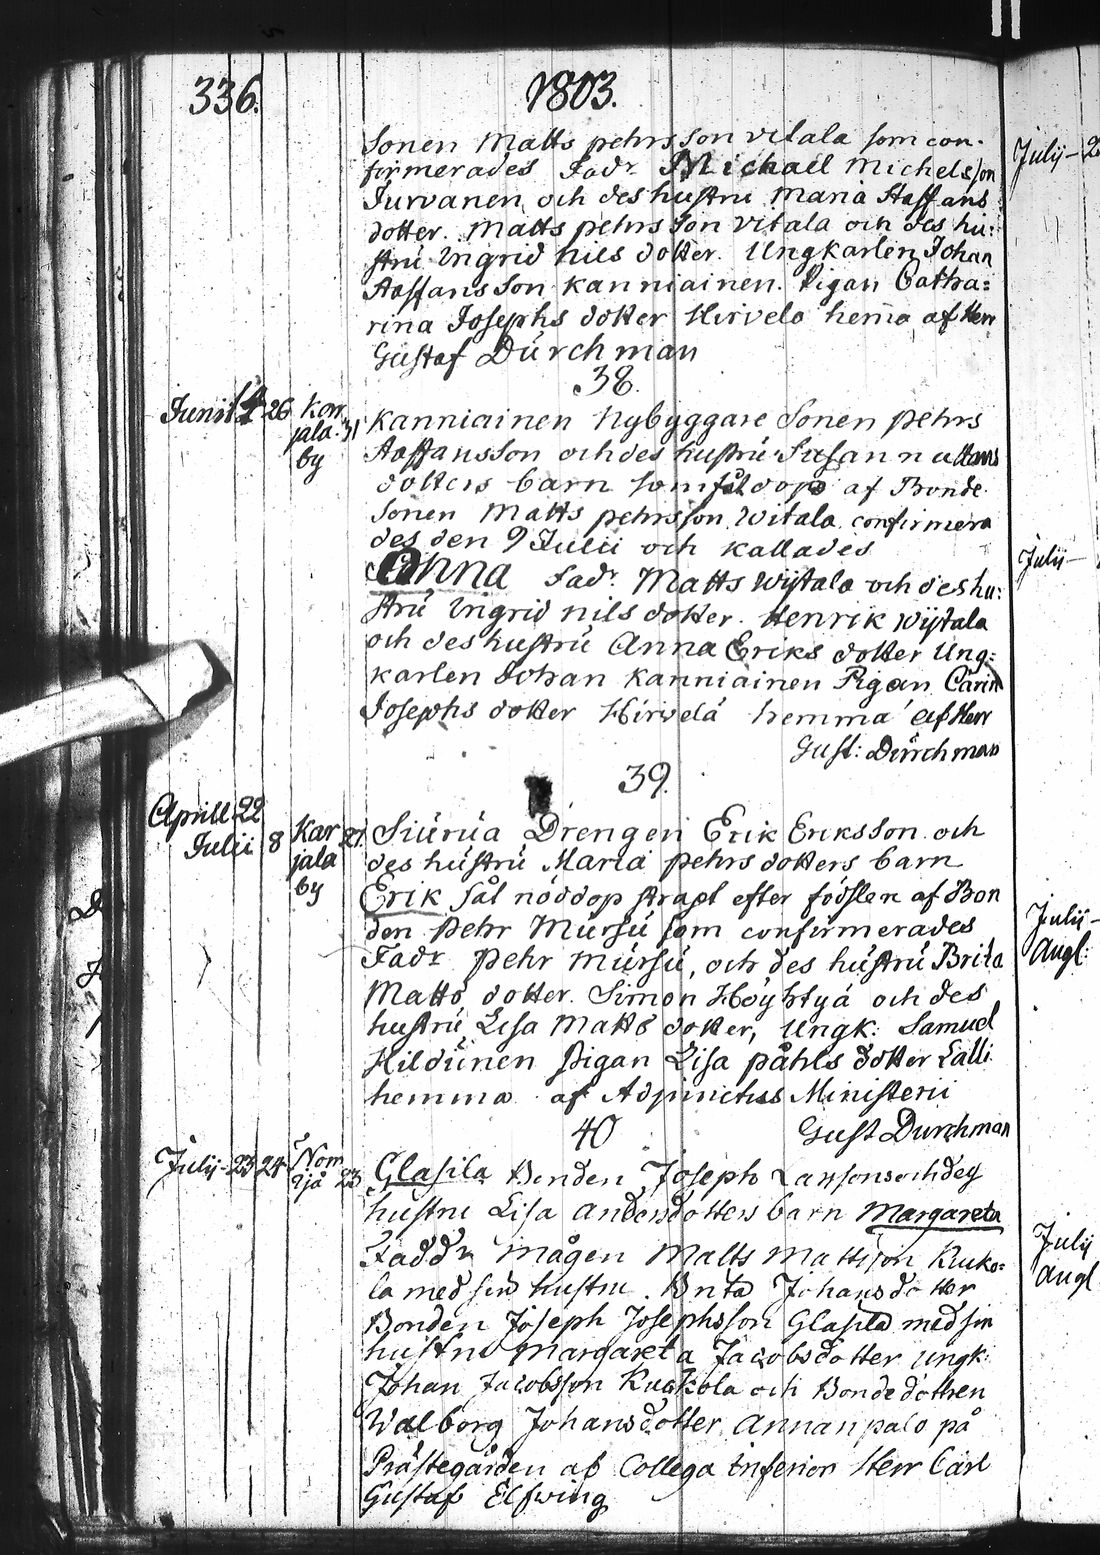 336. 1803.
Sonen Matts pehrsson vitala som con-
firmerades Fadr Michael Michelsson
Jurvanen och des hustru Maria Staffans
dotter. Matts pehrsson vitala och des hu:
stru Ingrid nils dotter. Ungkarlen Johan
Staffansson kanniainen. Pigan Catha=
rina Josephs dotter Hirvelo hema af Herr
Gustaf Dürchman
38.
Junii 26 Kar
jala 31
by
Kanniainen Nybyggare Sonen pehrs
Staffansson och des hustru Susanna
dotters barn som döps af Bonde
Sonen Matts pehrsson Witala confirmera
des den 9 Julii och kallades
Anna Fadr. Matts Wijtala och des hu:
stru Ingrid nils dotter. Henrik Wijtala
och des hustru Anna Eriks dotter Ung:
karlen Johan kanniainen Pigan Carin
Josephs dotter Hirvelä hemma af Herr
Gust: Dürchman
39.
Aprill 22
Julii 8 Kar 27
jala
by
Siurua Drengen Erik Eriksson och
des hustru Maria pehrs dotters barn
Erik fåt nöddop strapt efter födslen af Bon
den Pehr Mursu som confirmerades
Fadr Pehr Mursu, och des hustru Brita
Matts dotter. Simon Höyhtyä och des
hustru Lisa Matts dotter, Ungk: Samuel
Hildunen Pigan Lisa påhls dotter Lälli
hemma af Adjunctus Ministerii
Gust Durchman
40
Julij 23 24 Nom 23
sjö
Glasila Bonden Joseph Larssons och des
hustru Lisa Andersdotters barn Margareta
Faddr Mågen Matts Mattsson Kuko=
la med sin hustru. Brita Johansdotter
Bonden Joseph Josephsson Glasila med sin
hustru Margareta Jacobsdotter Ungk:
Johan Jacobsson Kuokola och Bonde dottren
Walborg Johansdotter Annanpalo på
Prästegården af Collega inferior Herr Carl
Gustaf Elfwing
Julij 2
Julij
Julij
Augl:
Julij
Augl